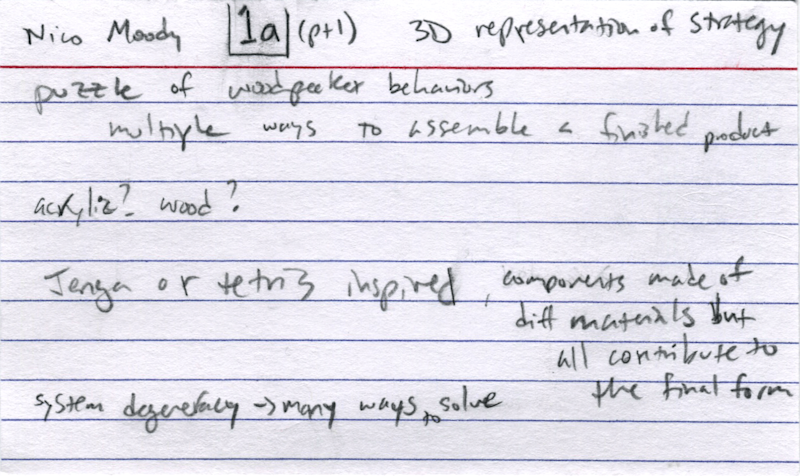 Nico Moody 1a (pt1) 3D representation of strategy
puzzle of woodpecker behaviors
multiple ways to assemble a finished product
acrylic? wood?
Jenga or tetris inspired, components made of
diff materials but
all contribute to
the final form
system degeneracy → many ways to solve